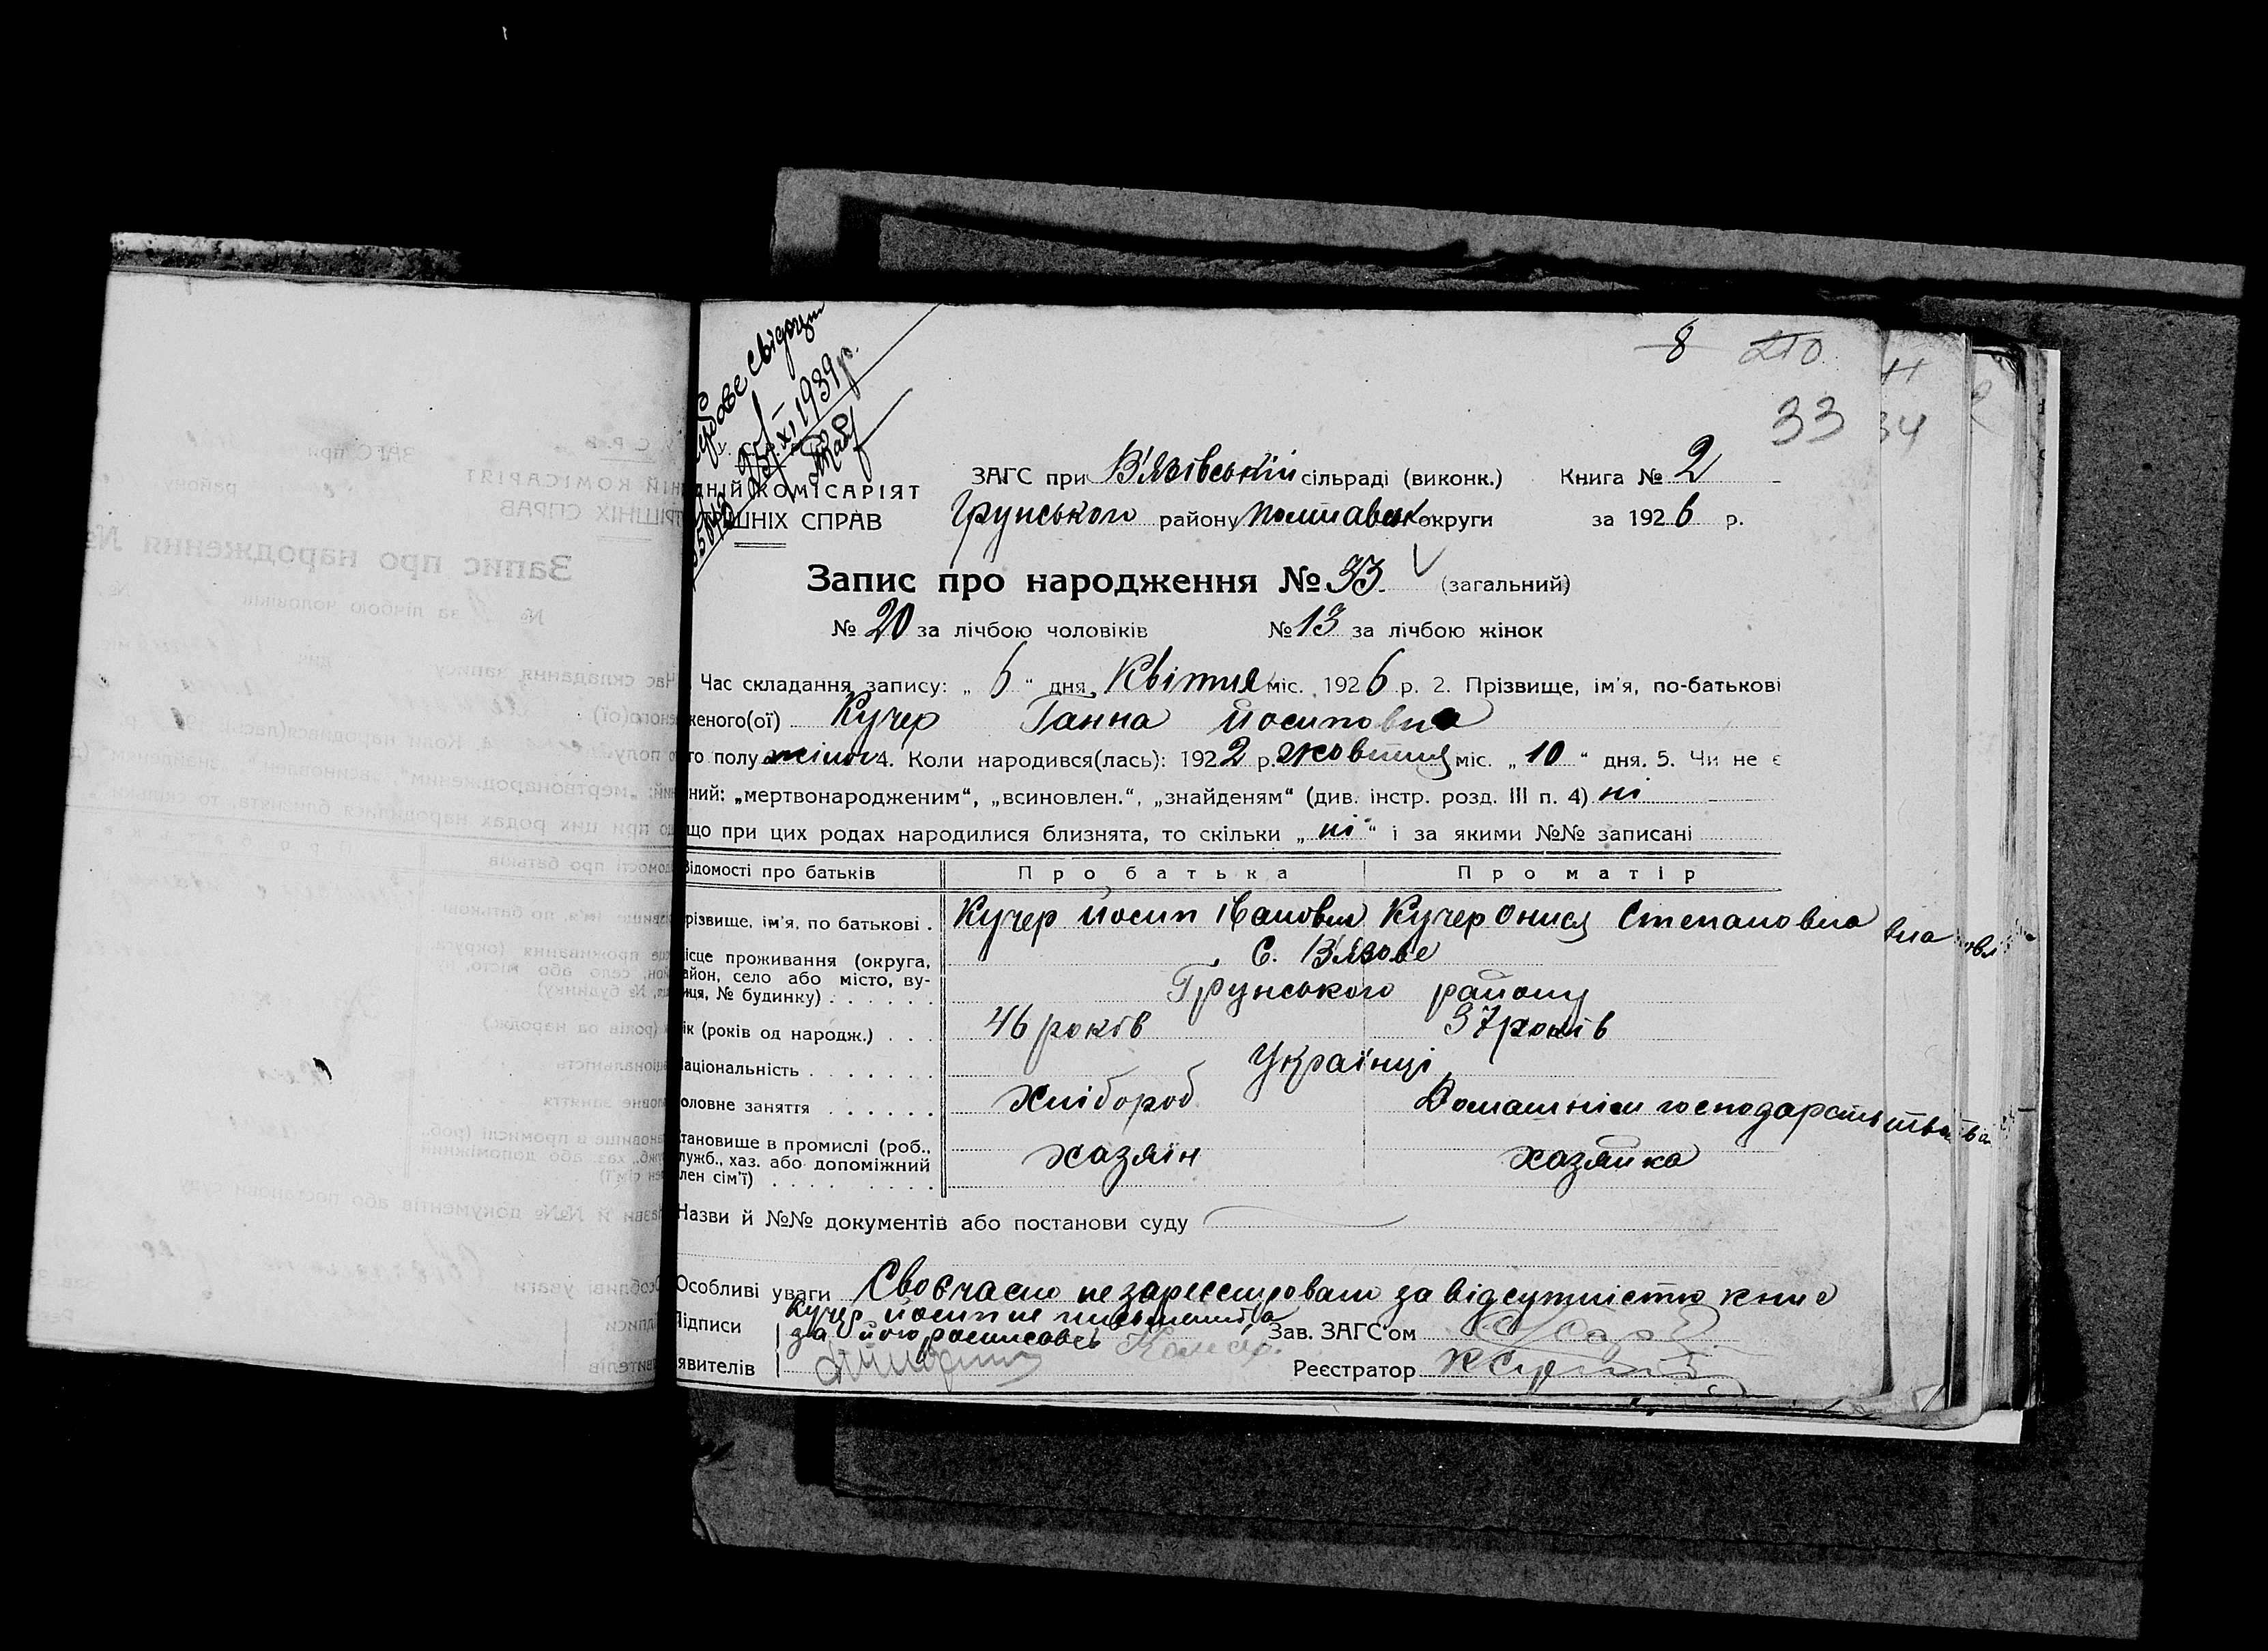 8 210
33
34
свідоцт
XI 1939 р.
ЗАГС при В'язівській сільраді (виконк.) Книга № 2
ДНІЙ КОМІСАРІЯТ
ТРІШНІХ СПРАВ Грунського району Полтавськ округи за 1926 р.
Запис про народження № 33. (загальний)
№ 20 за лічбою чоловіків № 13 за лічбою жінок
Час складання запису: „ 6 “ дня Квітня міс. 1926 р. 2. Прізвище, ім'я, по-батькові
женого(ої) Кучер Ганна Йосиповна
го полу жіноч 4. Коли народився(лась): 1922 р. жовтня міс. „ 10 “ дня. 5. Чи не є
ний: „мертвонародженим“, „всиновлен.“, „знайденям“ (див. інстр. розд. III п. 4) ні
що при цих родах народилися близнята, то скільки „ ні “ і за якими №№ записані
Відомості про батьків Про батька Про матір
різвище, ім'я, по батькові . Кучер Йосип Івановил Кучер Онися Степановна
ісце проживання (округа, С. В'язове
айон, село або місто, ву-
иця, № будинку) . . . . . . Грунського району
ік (років од народж.) . . . 46 років 37 років
аціональність . . . . . . . Українці
оловне заняття . . . . . . Хлібороб Домашнім господарств
тановище в промислі (роб.,
лужб., хаз. або допоміжний хазяїн хазяйка
лен сім'ї) . . . . . . . .
Назви й №№ документів або постанови суду
Особливі уваги Своєчасно не зареєстровано за відсутністю книг
Кучер Йосип не письменний а
Підписи за його росписавсь Зав. ЗАГС'ом
явителів Реєстратор